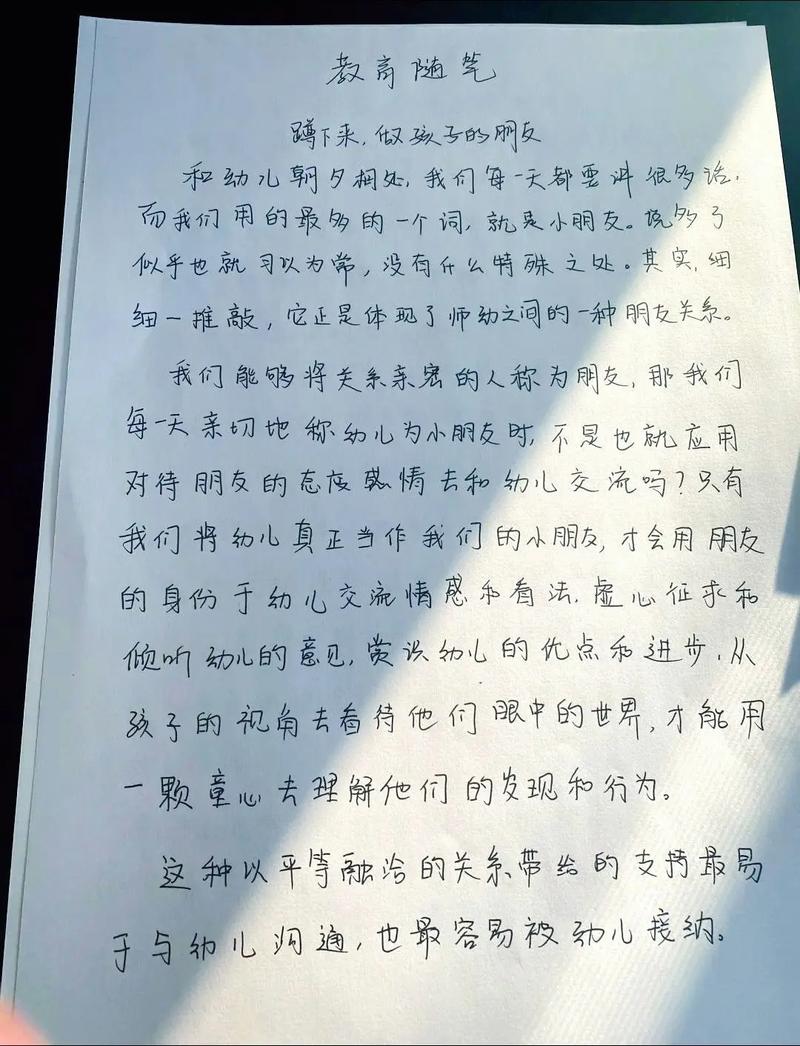 教育随笔
蹲下来,做孩子的朋友
和幼儿朝夕相处,我们每一天都要讲很多话,
而我们用的最多的一个词,就是小朋友。说多了
似乎也就习以为常,没有什么特殊之处。其实,细
细一推敲,它正是体现了师幼之间的一种朋友关系。
我们能够将关系亲密的人称为朋友,那我们
每一天亲切地称幼儿为小朋友时,不是也就应用
对待朋友的态度热情去和幼儿交流吗?只有
我们将幼儿真正当作我们的小朋友,才会用朋友
的身份于幼儿交流情感和看法,虚心征求和
倾听幼儿的意见,赏识幼儿的优点和进步,从
孩子的视角去看待他们眼中的世界,才能用
一颗童心去理解他们的发现和行为。
这种以平等融洽的关系带给的支持最易
于与幼儿沟通,也最容易被幼儿接纳。